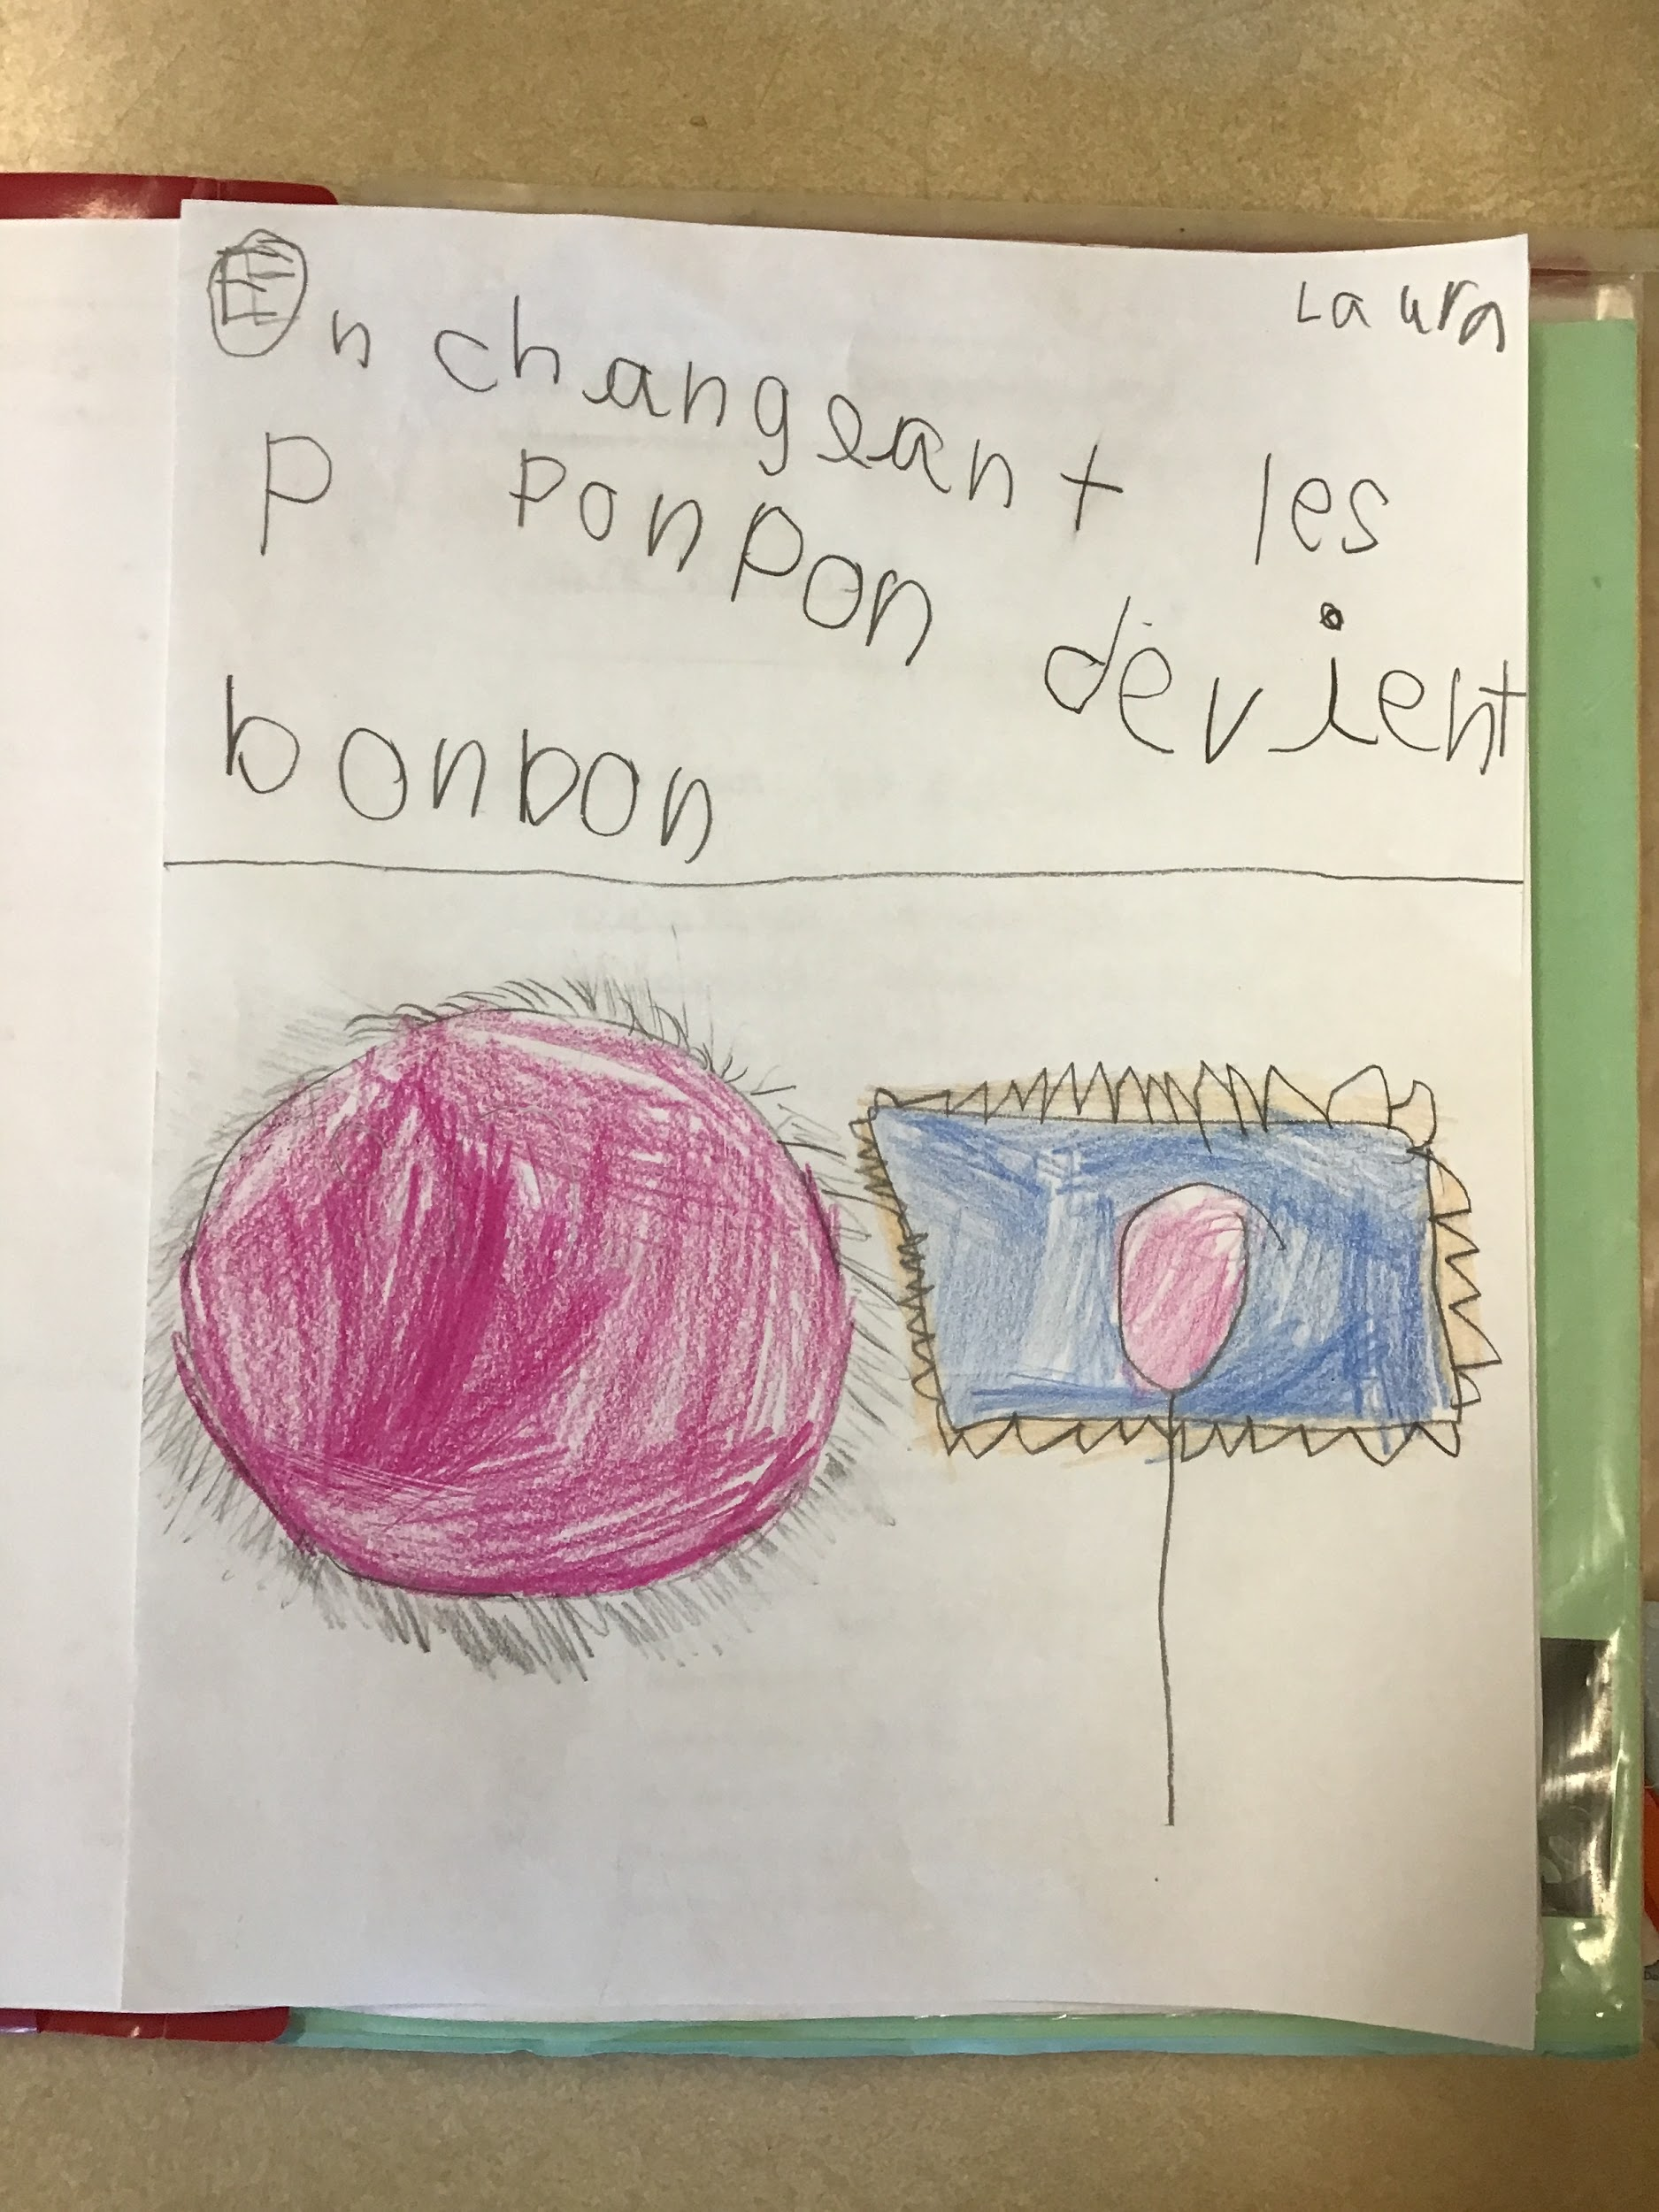 Laura
En changeant les
p ponpon devient
bonbon